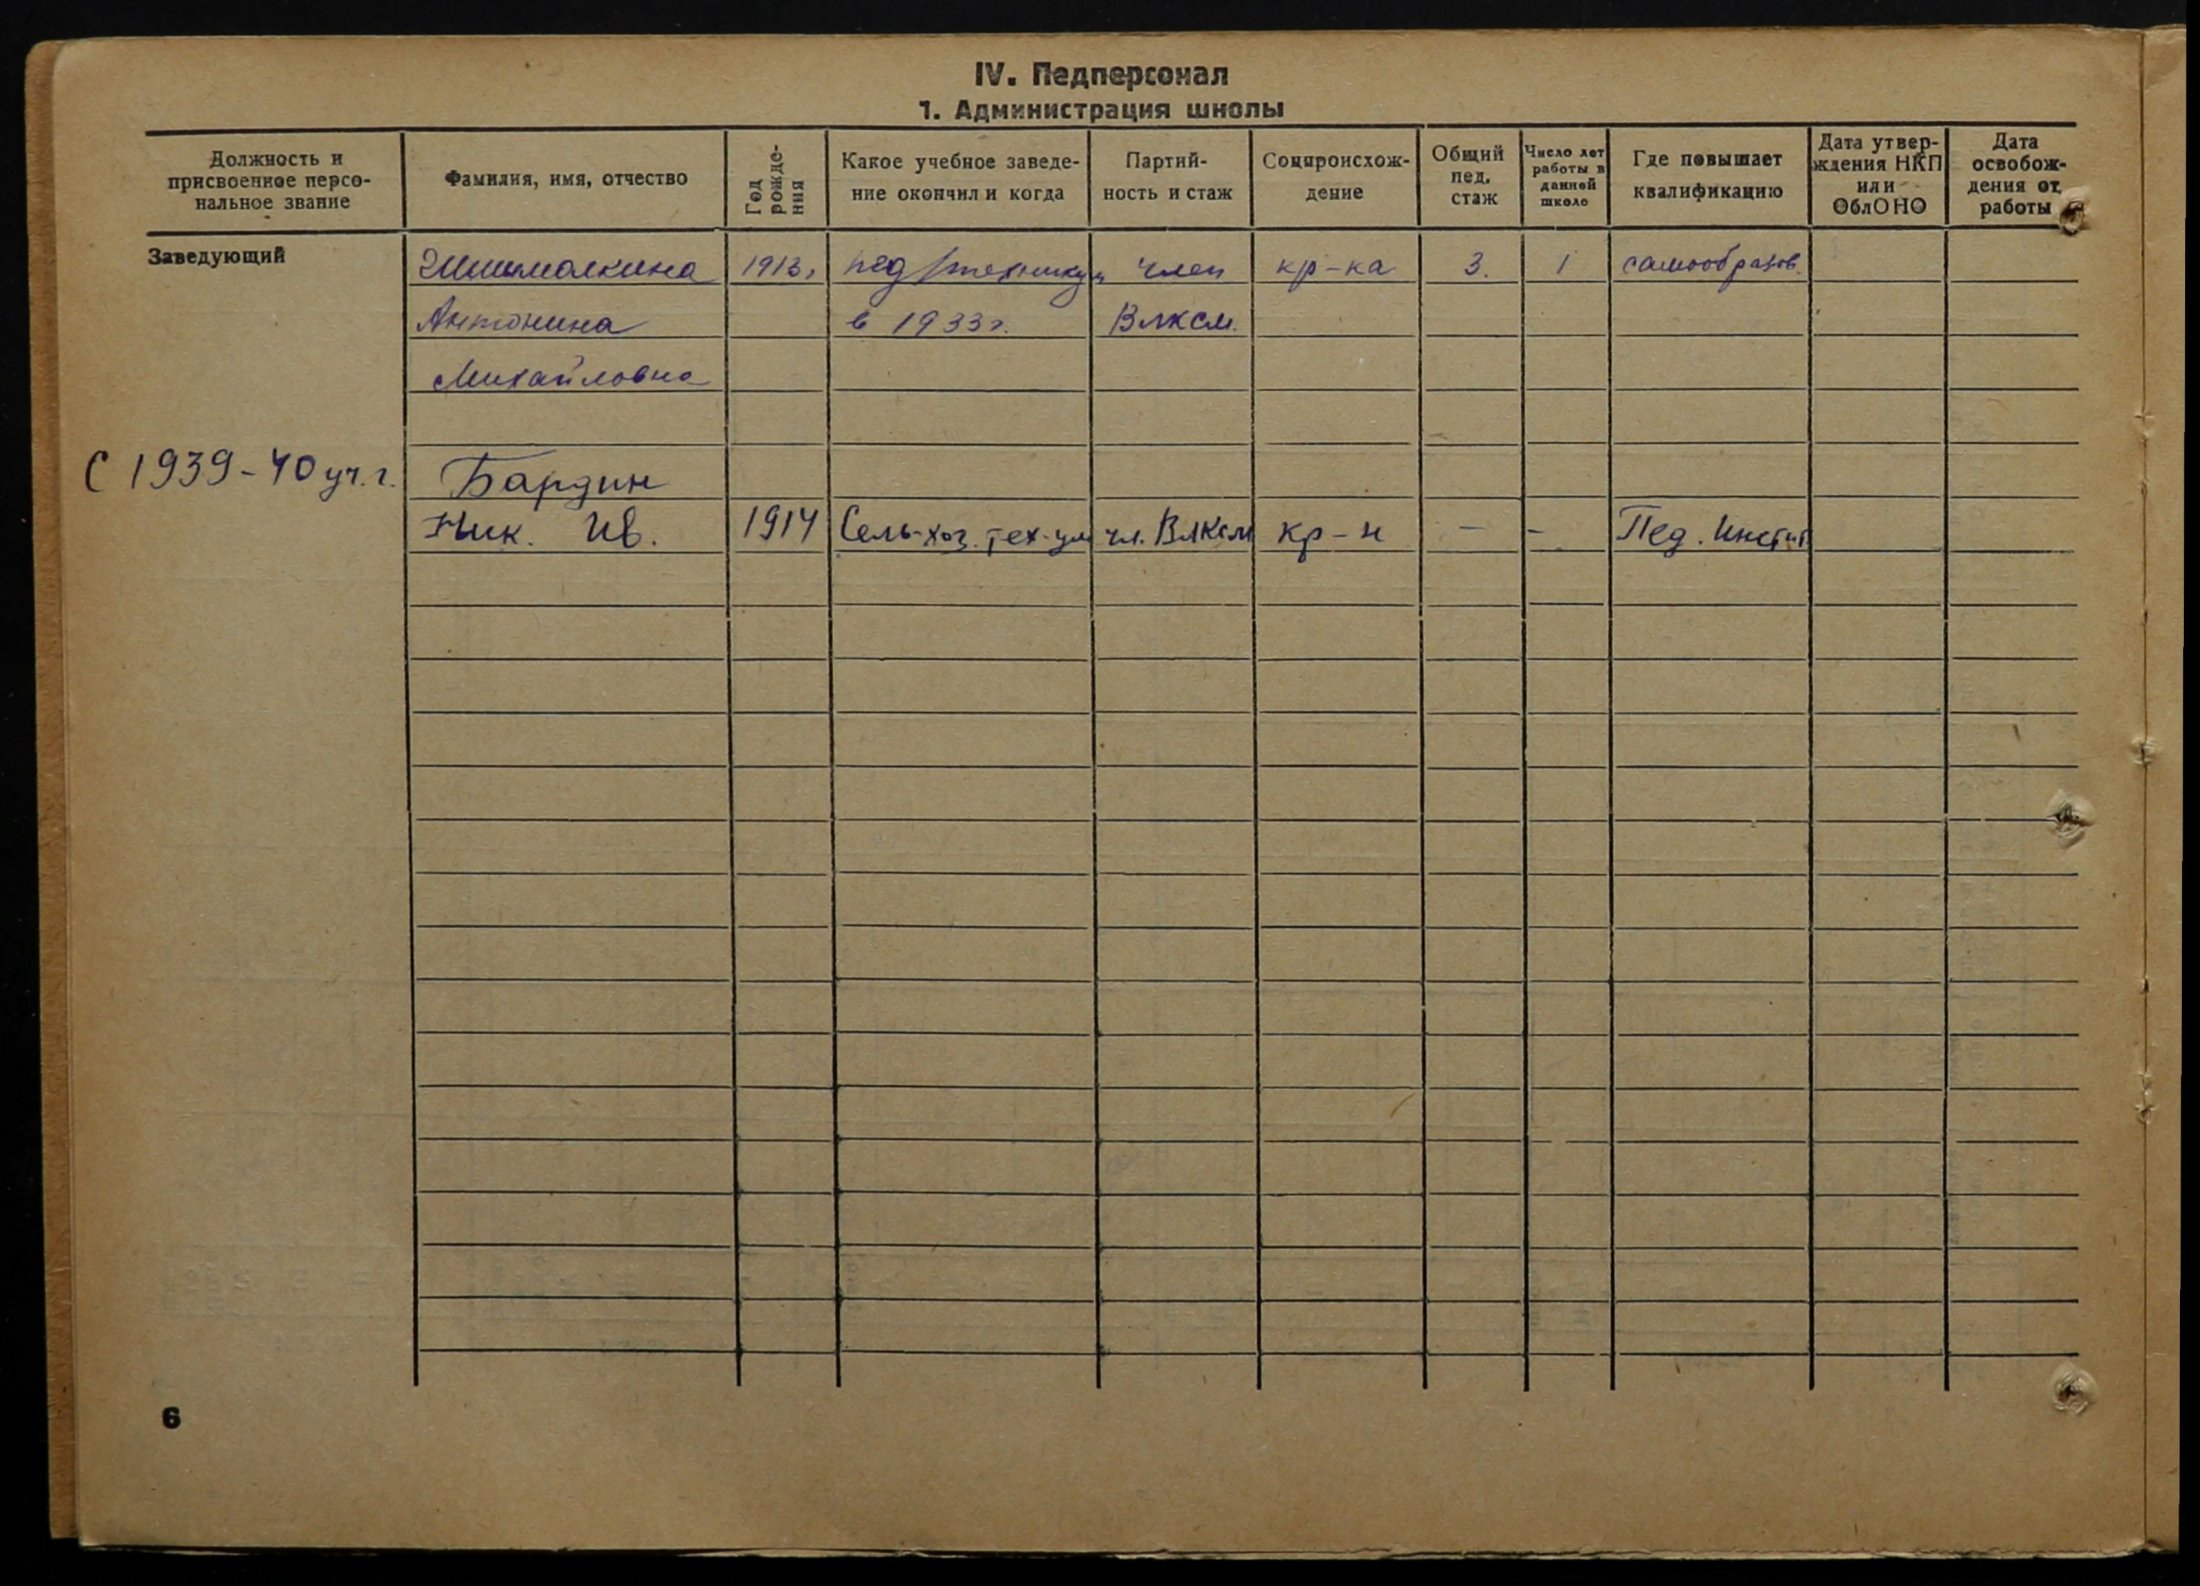 IV. Педперсонал
1. Администрация школы
Должность и присвоенное персональное звание
Фамилия, имя, отчество
Год рождения
Какое учебное заведение окончил и когда
Партийность и стаж
Соцпроисхождение
Общий пед. стаж
Число лет работы в данной школе
Где повышает квалификацию
Дата утверждения НКП или ОблОНО
Дата освобождения от работы
Заведующий 1913, пед/техникум член кр-ка 3. 1 самообразов.
Антонина в 1933г. ВЛКСМ.
Михайловна
С 1939-40 уч. г. Бардин
Ник. Ив. 1914 Сель-хоз. тех-ум чл. ВЛКСМ кр-н - - Пед. Инстит
6